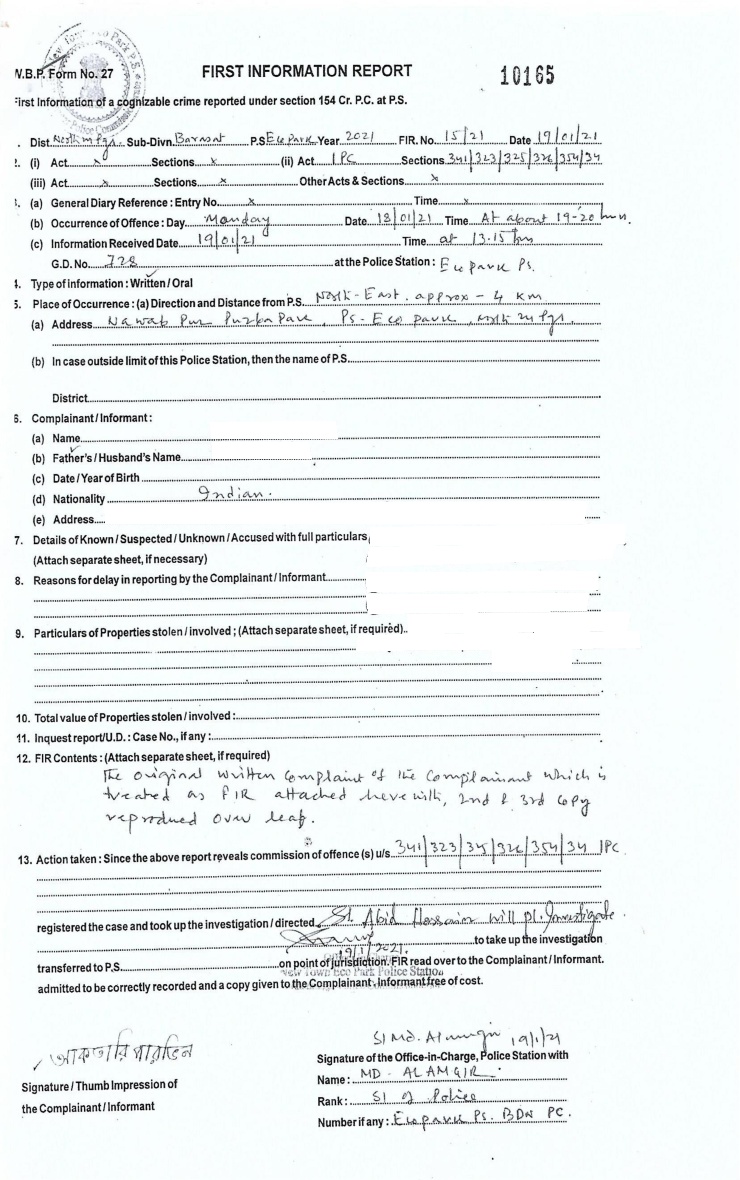 W.B.P. Form No. 27
FIRST INFORMATION REPORT
10165
First Information of a cognizable crime reported under section 154 Cr. P.C. at P.S.
Dist. North 24 Pgs. Sub-Divn. Barasat P.S Eco Park Year 2021 FIR. No. 15/21 Date 19/01/21
2. (i) Act x Sections x (ii) Act IPC Sections 341/323/325/326/354/34
(iii) Act x Sections x Other Acts & Sections x
(a) General Diary Reference : Entry No. x Time x
(b) Occurrence of Offence : Day Monday Date 18/01/21 Time At about 19-20 hrs.
(c) Information Received Date 19/01/21 Time at 13.15 hrs
G.D. No. 728 at the Police Station : Eco park Ps.
4. Type of information : Written / Oral
5. Place of Occurrence : (a) Direction and Distance from P.S. North-East. approx - 4 KM
(a) Address Nawab Pur Purba Para, Ps- Eco park, North 24 Pgs.
(b) In case outside limit of this Police Station, then the name of P.S.
District
6. Complainant / Informant :
(a) Name
(b) Father's / Husband's Name
(c) Date / Year of Birth
(d) Nationality Indian.
(e) Address
7. Details of Known / Suspected / Unknown / Accused with full particulars
(Attach separate sheet, if necessary)
8. Reasons for delay in reporting by the Complainant / Informant
9. Particulars of Properties stolen / involved ; (Attach separate sheet, if required)
10. Total value of Properties stolen / involved :
11. Inquest report/U.D. : Case No., if any :
12. FIR Contents : (Attach separate sheet, if required)
The original written complaint of the complainant which is
treated as FIR attached herewith, 2nd & 3rd copy
reproduced over leaf.
13. Action taken : Since the above report reveals commission of offence (s) u/s 341/323/325/326/354/34 IPC
registered the case and took up the investigation / directed SI. Abid Hossain will pl. Investigate
19/1/2021. to take up the investigation
transferred to P.S. on point of jurisdiction. FIR read over to the Complainant / Informant.
New Town Eco Park Police Station
admitted to be correctly recorded and a copy given to the Complainant, Informant free of cost.
আকতারি পারভিন
Signature / Thumb Impression of
the Complainant / Informant
SI Md. Alamgir 19/1/21
Signature of the Office-in-Charge, Police Station with
Name : MD - ALAMGIR
Rank : SI of Police
Number if any : Eco park Ps. BDN PC.